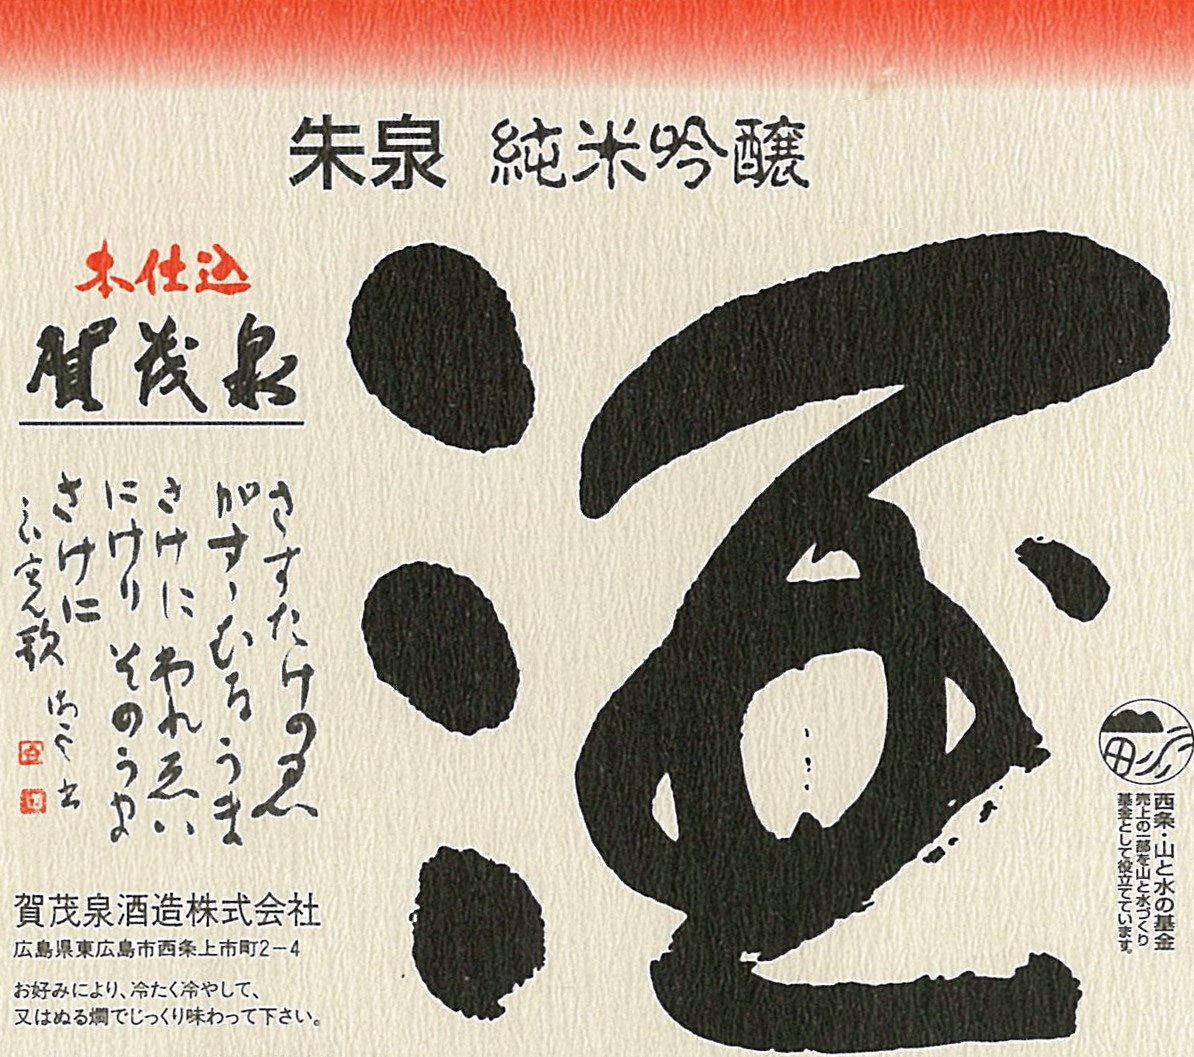 朱泉 純米吟醸
酒
本仕込
賀茂泉
さすたけの
かすゝむるうま
さけに われゑい
にけり そのうま
さけに
賀茂泉酒造株式会社
広島県東広島市西条上市町2-4
お好みにより、冷たく冷やして、
又はぬる燗でじっくり味わって下さい。
西条・山と水の基金
売上の一部を山と水づくり
基金として役立てています。